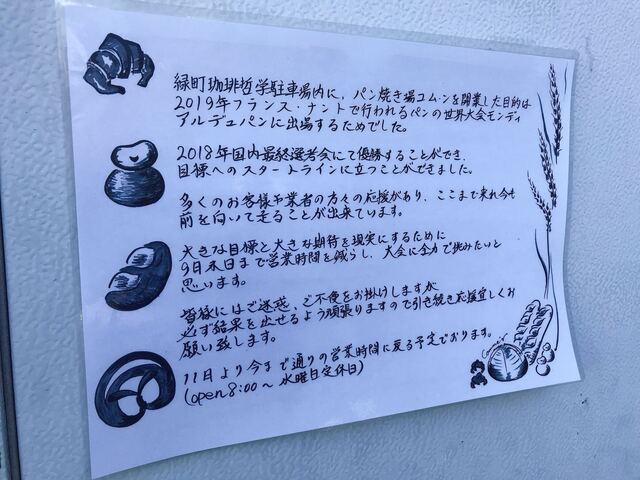 緑町珈琲哲学駐車場内に、パン焼き場コム・ンを開業した目的は
2019年フランス・ナントで行われるパンの世界大会モンディ
アルデュパンに出場するためでした。
2018年国内最終選考会にて優勝することができ、
目標へのスタートラインに立つことができました。
多くのお客様や業者の方々の応援があり、ここまで来れ今も
前を向いて走ることが出来ています。
大きな目標と大きな期待を現実にするために
9月末日まで営業時間を減らし、大会に全力で挑みたいと
思います。
皆様にはご迷惑、ご不便をお掛けしますが
必ず結果を出せるよう頑張りますので引き続き応援宜しくお
願い致します。
11月より今まで通りの営業時間に戻る予定でおります。
(open8:00〜 水曜日定休日)